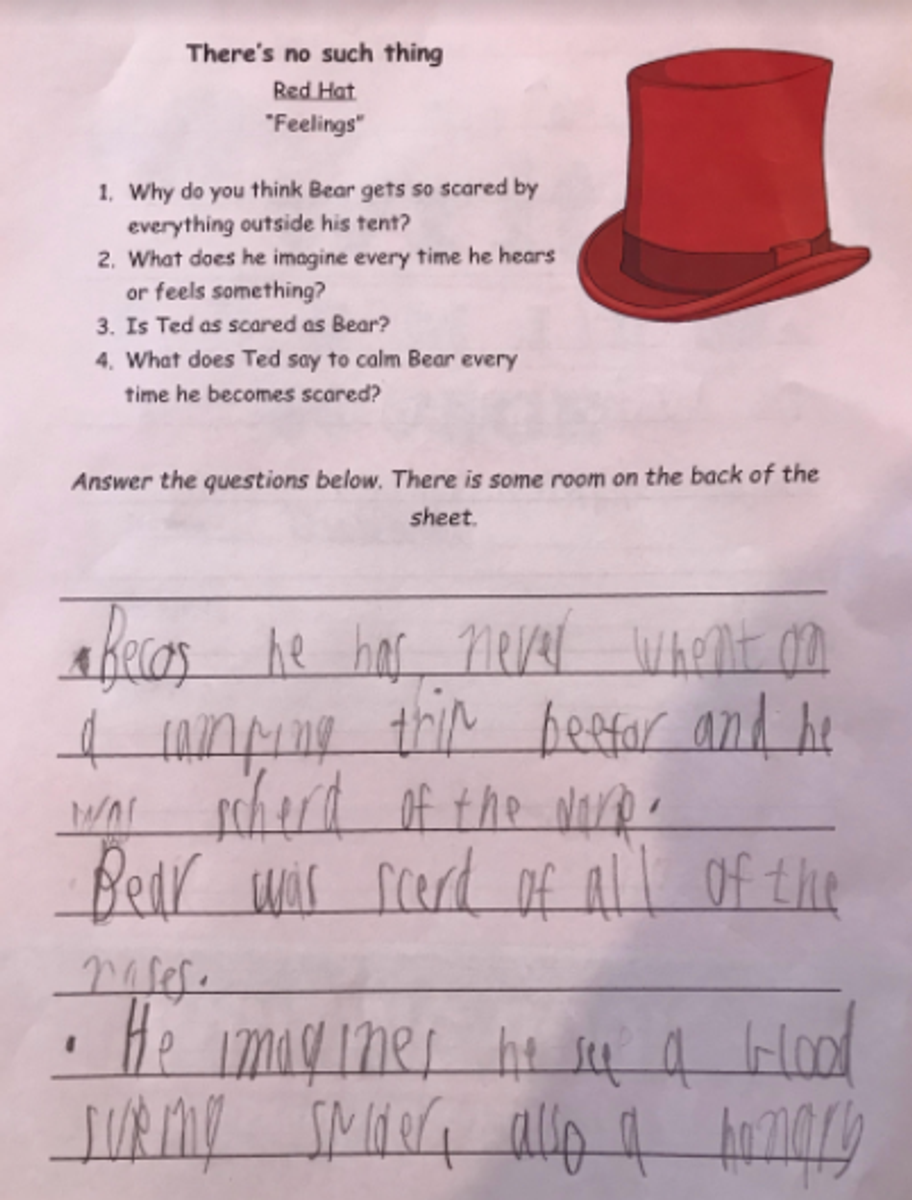 There's no such thing
Red Hat
"Feelings"
1. Why do you think Bear gets so scared by
everything outside his tent?
2. What does he imagine every time he hears
or feels something?
3. Is Ted as scared as Bear?
4. What does Ted say to calm Bear every
time he becomes scared?
Answer the questions below. There is some room on the back of the
sheet.
Becos he has never whent on
a camping trip beefor and he
was scherd of the darp.
Bear was scerd of all of the
noses.
• He imagines he see a blood
suking spider, also a hongry